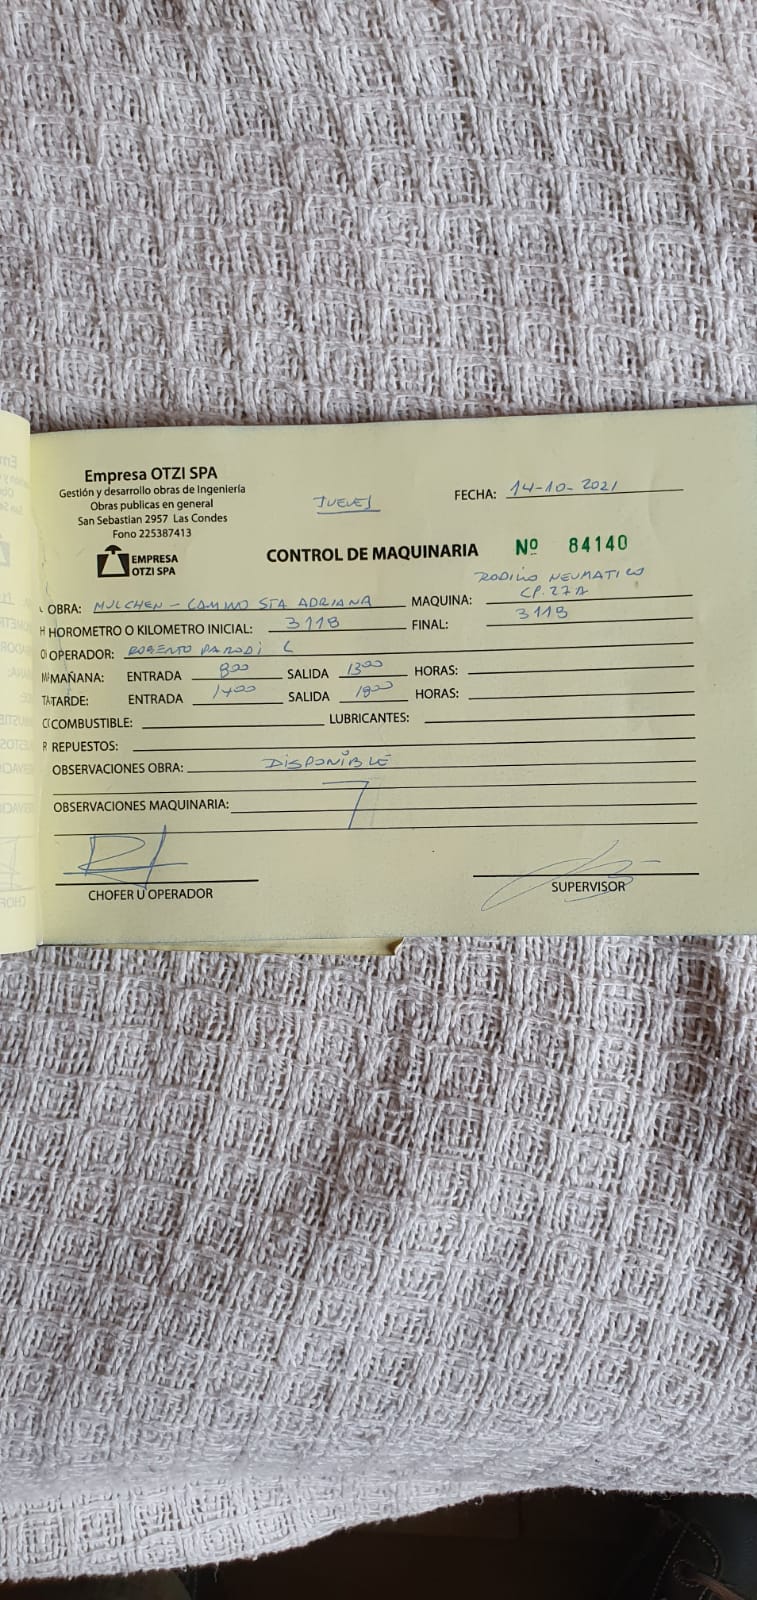 Empresa OTZI SPA
Gestión y desarrollo obras de Ingeniería
Obras publicas en general
San Sebastian 2957 Las Condes
Fono 225387413
EMPRESA
OTZI SPA
JUEVES
FECHA: 14-10-2021
CONTROL DE MAQUINARIA Nº 84140
OBRA: MULCHEN - CAMINO STA ADRIANA MAQUINA: RODILLO NEUMATICO CP.27A
HOROMETRO O KILOMETRO INICIAL: 3118 FINAL: 3118
OPERADOR: ROBERTO PARODI L
MAÑANA: ENTRADA 800 SALIDA 1300 HORAS:
TARDE: ENTRADA 1400 SALIDA 1800 HORAS:
COMBUSTIBLE: LUBRICANTES:
REPUESTOS:
OBSERVACIONES OBRA: DISPONIBLE
OBSERVACIONES MAQUINARIA:
CHOFER U OPERADOR SUPERVISOR